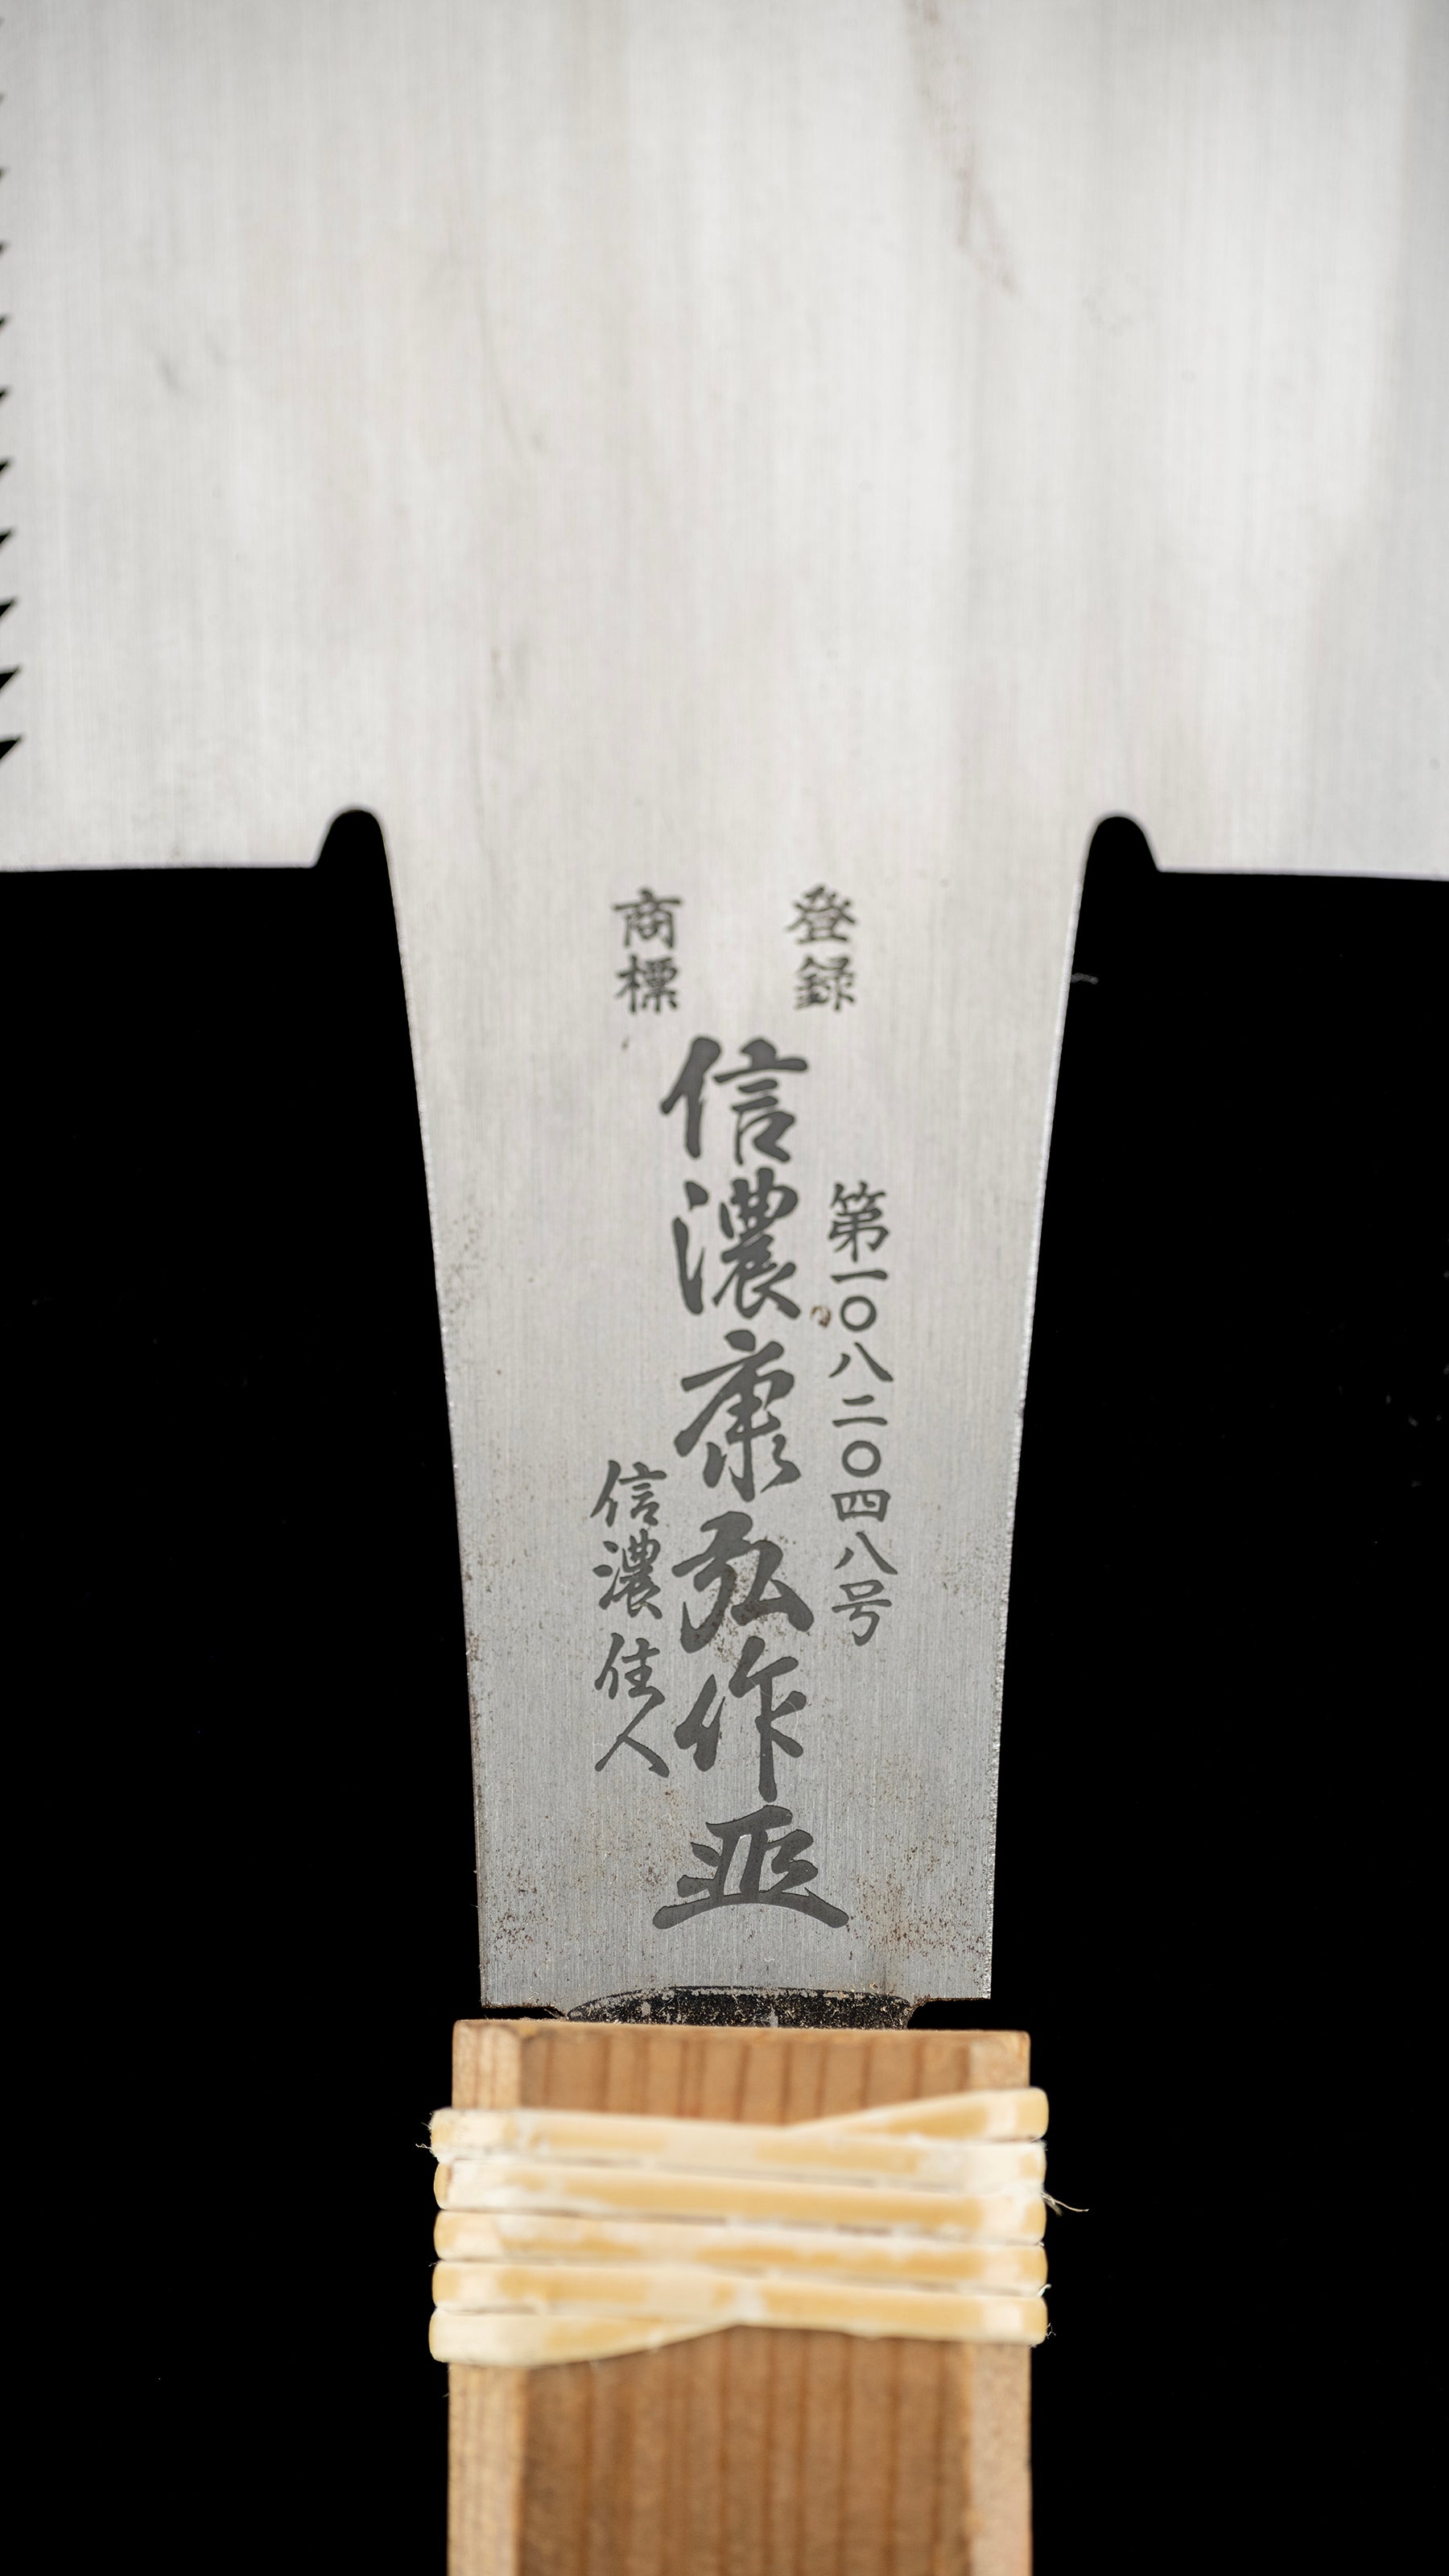 登録
商標
第一〇八二〇四八号
信濃康弘作
信濃住人